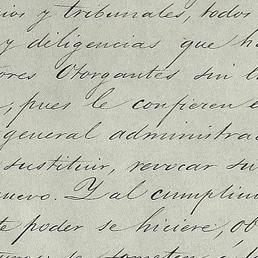 ios y tribunales, todos
y diligencias que ha
ores Otorgantes sin l
, pues le confieren e
general administra
sustituir, revocar su
nuevo. Y al cumplim
te poder se hiciere, ob